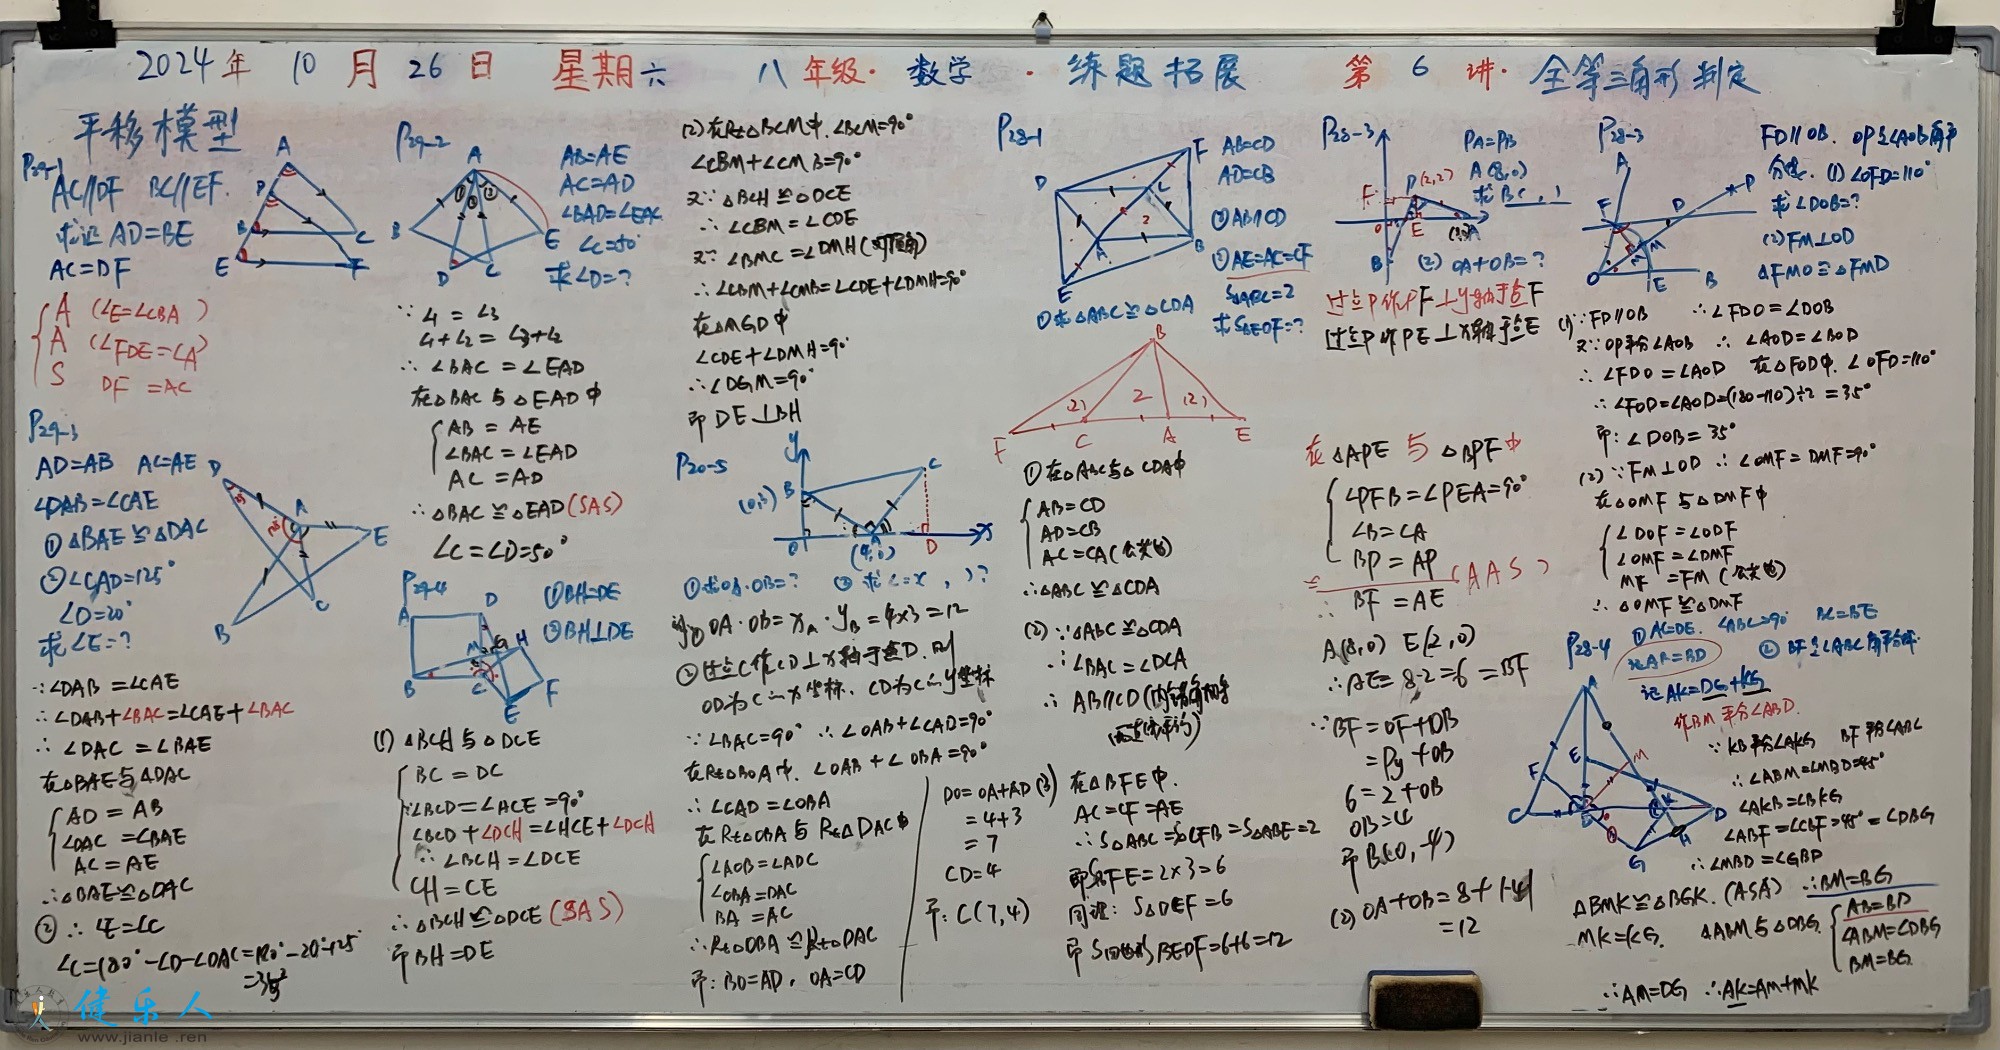 2024年 10 月 26 日 星期六 八年级· 数学 · 练题拓展 第 6 讲· 全等三角形判定
平移模型
P29-1
AC//DF BC//EF.
求证 AD=BE
AC=DF
A (∠E=∠CBA)
A (∠FDE=∠A)
S DF = AC
P29-3
AD=AB AC=AE
∠DAB=∠CAE
① △BAE≌△DAC
②∠CAD=125°
∠D=20°
求∠E=?
∵∠DAB=∠CAE
∴∠DAB+∠BAC=∠CAE+∠BAC
∴ ∠DAC = ∠BAE
在△BAE与△DAC
AD = AB
∠DAC = ∠BAE
AC = AE
∴△BAE≌△DAC
② ∴ ∠E=∠C
∠C=180°-∠D-∠DAC=180°-20°-125°
=35°
P29-2
AB=AE
AC=AD
∠BAD=∠EAC
∠C=50°
求∠D=?
∵ ∠1 = ∠3
∠1+∠2 = ∠3+∠2
∴ ∠BAC = ∠EAD
在△BAC 与 △EAD 中
AB = AE
∠BAC = ∠EAD
AC = AD
∴ △BAC ≌ △EAD (SAS)
∠C=∠D=50°
P29-4
①BH=DE
②BH⊥DE
(1) △BCH 与 △DCE
BC = DC
∵∠BCD=∠HCE=90°
∠BCD+∠DCH=∠HCE+∠DCH
∴ ∠BCH=∠DCE
CH=CE
∴ △BCH≌△DCE (SAS)
即 BH=DE
(2) 在Rt△BCM中,∠BCM=90°
∠CBM+∠CMB=90°
又∵ △BCH≌△DCE
∴ ∠CBM=∠CDE
又∵ ∠BMC=∠DMH(对顶角)
∴∠CBM+∠CMB=∠CDE+∠DMH=90°
在△MGD中
∠CDE+∠DMH=90°
∴∠DGM=90°
即 DE⊥BH
P20-5
(0,3)
(4,0)
①求OA·OB=?
① OA·OB=xA·yB=4×3=12
② 过点C作CD⊥x轴于点D.则
OD为C点x坐标. CD为C点y坐标
∵∠BAC=90° ∴∠OAB+∠CAD=90°
在Rt△BOA中. ∠OAB+∠OBA=90°
∴ ∠CAD=∠OBA
在Rt△OBA与Rt△DAC中
∠AOB=∠ADC
∠OBA=DAC
BA = AC
∴Rt△OBA≌Rt△DAC
即: BO=AD, OA=CD
DO=OA+AD
= 4+3
= 7
CD=4
即: C(7,4)
P28-1
AB=CD
AD=CB
②AB//CD
③AE=AC=CF
S△ABC=2
求S BEDF=?
①求△ABC≌△CDA
① 在△ABC与△CDA中
AB=CD
AD=CB
AC=CA(公共边)
∴△ABC≌△CDA
(2) ∵△ABC≌△CDA
∴∠BAC=∠DCA
∴ AB//CD (内错角相等
两直线平行)
(3) 在△BFE中.
AC=CF=AE
∴S△ABC=S△CFB=S△ABE=2
即S△BFE=2×3=6
同理: S△DEF=6
即 S四边形BEDF=6+6=12
P28-3
PA=PB
P(2,2)
A(8,0)
(2) OA+OB=?
过点P作PF⊥y轴于点F
过点P作PE⊥x轴于点E
在△APE 与 △BPF中
∠PFB=∠PEA=90°
∠B=∠A
BP=AP
(AAS)
∴ BF=AE
A(8,0) E(2,0)
∴AE=8-2=6=BF
∵BF=OF+OB
= Py+OB
6=2+OB
OB=4
即B(0,-4)
(2) OA+OB=8+|-4|
=12
P28-3
FD//OB. OP是∠AOB角平
分线. (1) ∠OFD=110°
求∠DOB=?
(2) FM⊥OD
△FMO≌△FMD
(1)∵FD//OB ∴∠FDO=∠DOB
又∵OP平分∠AOB ∴∠AOD=∠BOD
∴ ∠FDO=∠AOD 在△FOD中. ∠OFD=110°
∴∠FOD=∠AOD=(180-110)÷2=35°
即: ∠DOB=35°
(2)∵FM⊥OD ∴∠OMF=DMF=90°
在△OMF与△DMF中
∠DOF=∠ODF
∠OMF=∠DMF
MF=FM (公共边)
∴△OMF≌△DMF
P28-4
① AC=DE. ∠ABC=90° BC=BE
证AB=BD
② BF是∠ABC角平分线.
证 AK=DG+KG
作BM平分∠ABD.
∵ KB平分∠AKG BF平分∠ABC
∴∠ABM=∠MBD=45°
∠AKB=∠BKG
∠ABF=∠CBF=45°=∠DBG
∴∠MBD=∠GBD
△BMK≌△BGK. (ASA) ∴BM=BG
MK=KG. △ABM与△DBG
AB=BD
∠ABM=∠DBG
BM=BG
∴AM=DG ∴AK=AM+MK
健乐人
www.jianle.ren